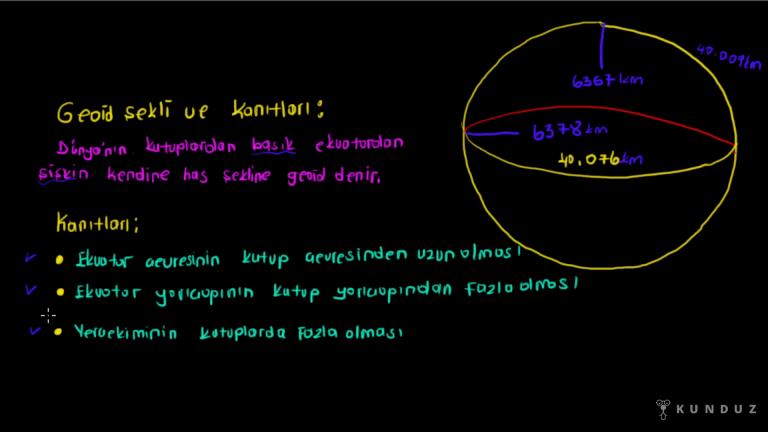 Geoid şekli ve kanıtları:
Dünya'nın kutuplardan basık ekvatordan
şişkin kendine has şekline geoid denir.
Kanıtları;
Ekvator çevresinin kutup çevresinden uzun olması
Ekvator yarıçapının kutup yarıçapından fazla olması
Yerçekiminin kutuplarda fazla olması
40.009km
6367km
6378km
40.076km
KUNDUZ